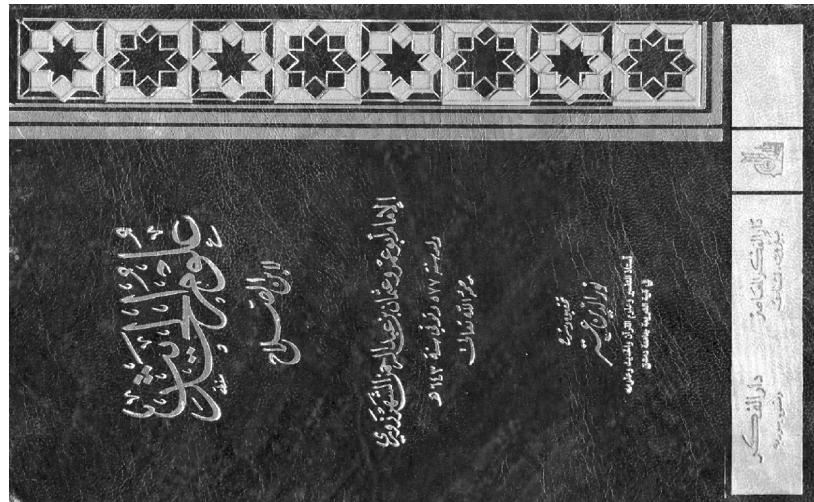 علوم الحديث
لابن الصلاح
الإمام أبو عمرو عثمان بن عبد الرحمن الشهرزوري
ولد سنة ٥٧٧ وتوفي سنة ٦٤٣ هـ
رحمه الله تعالى
تحقيق وشرح
نور الدين عتر
أستاذ التفسير وعلوم القرآن والحديث وعلومه
في كلية الشريعة جامعة دمشق
دار الفكر المعاصر
بيروت - لبنان
دار الفكر
دمشق - سورية